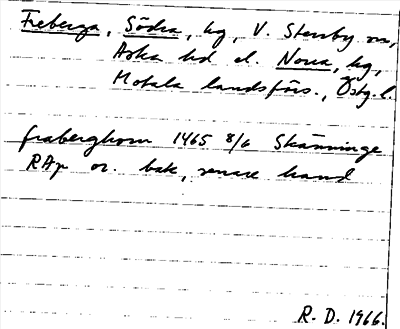 Freberga, Södra, hg, V. Stenby sn,
Aska hd el. Norra, hg,
Motala landsförs., Östg.l.
fraberghom 1465 8/6 Skänninge
RAp or. bak, senare hand
R. D. 1966.